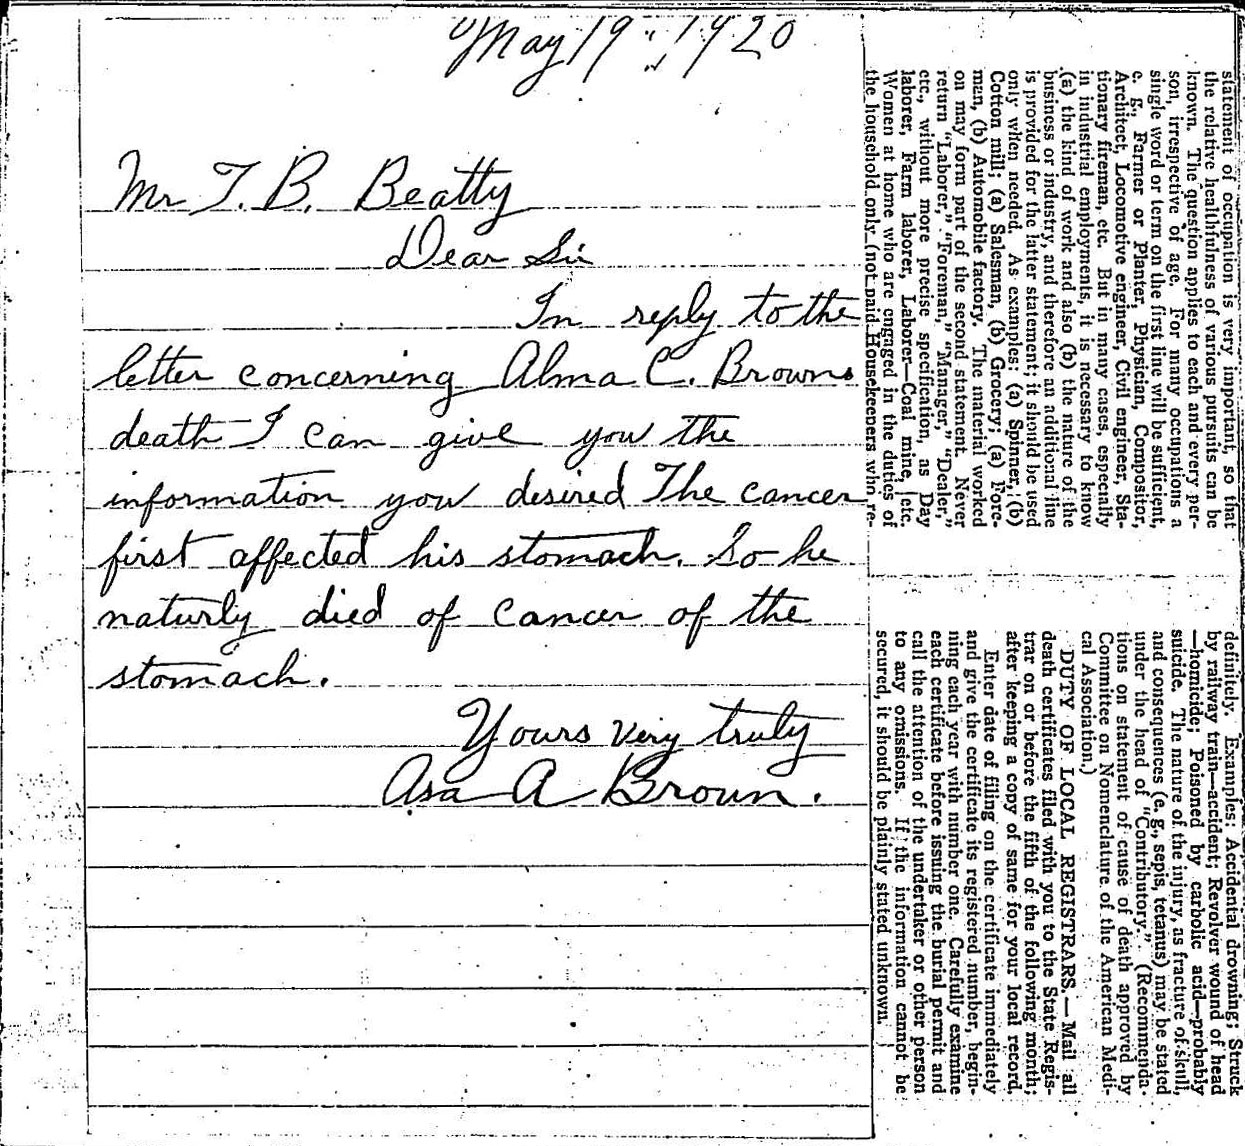 May 19, 1920
Mr T. B. Beatty
Dear Sir
In reply to the
letter concerning Alma C. Browns
death I can give you the
information you desired The cancer
first affected his stomach. So he
naturly died of cancer of the
stomach.
Yours very truly
Asa A Brown.
statement of occupation is very important, so that
the relative healthfulness of various pursuits can be
known. The question applies to each and every per-
son, irrespective of age. For many occupations a
single word or term on the first line will be sufficient,
e. g., Farmer or Planter, Physician, Compositor,
Architect, Locomotive engineer, Civil engineer, Sta-
tionary fireman, etc. But in many cases, especially
in industrial employments, it is necessary to know
(a) the kind of work and also (b) the nature of the
business or industry, and therefore an additional line
is provided for the latter statement; it should be used
only when needed. As examples: (a) Spinner, (b)
Cotton mill; (a) Salesman, (b) Grocery; (a) Fore-
man, (b) Automobile factory. The material worked
on may form part of the second statement. Never
return "Laborer," "Foreman," "Manager," "Dealer,"
etc., without more precise specification, as Day
laborer, Farm laborer, Laborer—Coal mine, etc.
Women at home who are engaged in the duties of
the household only (not paid Housekeepers who re-
definitely. Examples: Accidental drowning; Struck
by railway train—accident; Revolver wound of head
—homicide; Poisoned by carbolic acid—probably
suicide. The nature of the injury, as fracture of skull,
and consequences (e. g., sepis, tetanus) may be stated
under the head of "Contributory." (Recommenda-
tions on statement of cause of death approved by
Committee on Nomenclature of the American Medi-
cal Association.)
DUTY OF LOCAL REGISTRARS.—Mail all
death certificates filed with you to the State Regis-
trar on or before the fifth of the following month;
after keeping a copy of same for your local record.
Enter date of filing on the certificate immediately
and give the certificate its registered number, begin-
ning each year with number one. Carefully examine
each certificate before issuing the burial permit and
call the attention of the undertaker or other person
to any omissions. If the information cannot be
secured, it should be plainly stated unknown.